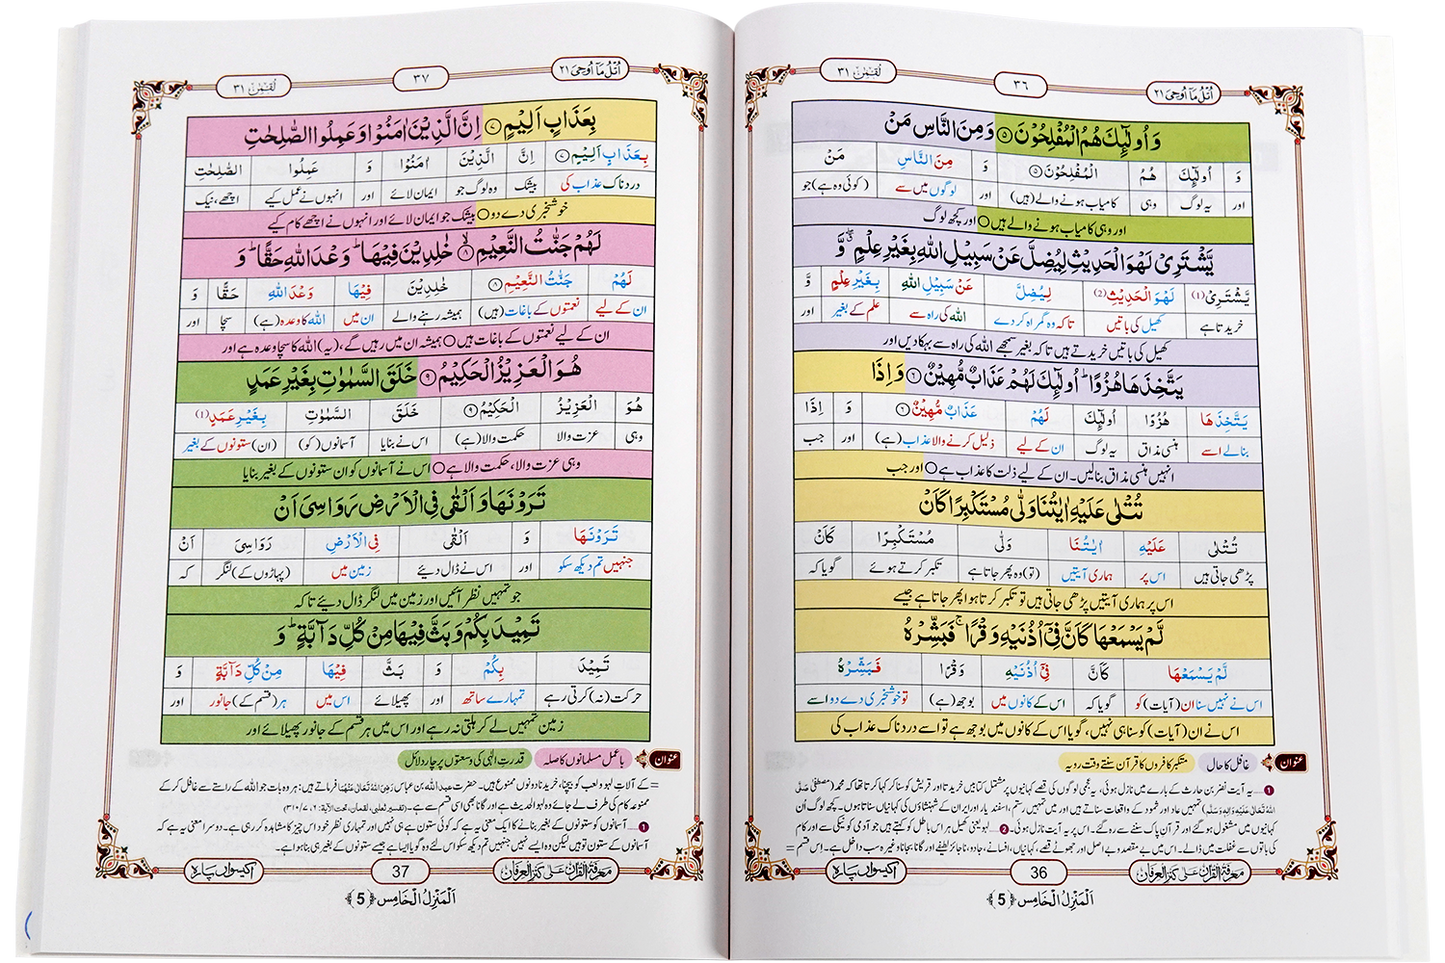 اُتْلُ مَا اُوْحِیَ ٢١
٣٦
لُقْمٰن ٣١
وَ اُولٰٓىٕكَ هُمُ الْمُفْلِحُوْنَ ۝٥ وَ مِنَ النَّاسِ مَنْ
وَ اُولٰٓىٕكَ هُمُ الْمُفْلِحُوْنَ ۝٥ وَ مِنَ النَّاسِ مَنْ
اور یہ لوگ وہی کامیاب ہونے والے (ہیں) اور لوگوں میں سے (کوئی وہ ہے) جو
اور وہی کامیاب ہونے والے ہیں○ اور کچھ لوگ
یَّشْتَرِیْ لَهْوَ الْحَدِیْثِ لِیُضِلَّ عَنْ سَبِیْلِ اللّٰهِ بِغَیْرِ عِلْمٍ ۖۗ وَّ
یَّشْتَرِیْ (1) لَهْوَ الْحَدِیْثِ (2) لِیُضِلَّ عَنْ سَبِیْلِ اللّٰهِ بِغَیْرِ عِلْمٍ وَّ
خریدتا ہے کھیل کی باتیں تاکہ وہ گمراہ کر دے اللہ کی راہ سے علم کے بغیر اور
کھیل کی باتیں خریدتے ہیں تاکہ بغیر سمجھے اللہ کی راہ سے بہکا دیں اور
یَتَّخِذَهَا هُزُوًا ؕ اُولٰٓىٕكَ لَهُمْ عَذَابٌ مُّهِیْنٌ ۝٦ وَ اِذَا
یَتَّخِذَهَا هُزُوًا اُولٰٓىٕكَ لَهُمْ عَذَابٌ مُّهِیْنٌ ۝٦ وَ اِذَا
بنالے اسے ہنسی مذاق یہ لوگ ان کے لیے ذلیل کرنے والا عذاب (ہے) اور جب
انہیں ہنسی مذاق بنالیں۔ ان کے لیے ذلت کا عذاب ہے○ اور جب
تُتْلٰى عَلَیْهِ اٰیٰتُنَا وَلّٰى مُسْتَكْبِرًا كَاَنْ
تُتْلٰى عَلَیْهِ اٰیٰتُنَا وَلّٰى مُسْتَكْبِرًا كَاَنْ
پڑھی جاتی ہیں اس پر ہماری آیتیں (تو) وہ پھر جاتا ہے تکبر کرتے ہوئے گویا کہ
اس پر ہماری آیتیں پڑھی جاتی ہیں تو تکبر کرتا ہوا پھر جاتا ہے جیسے
لَّمْ یَسْمَعْهَا كَاَنَّ فِیْۤ اُذُنَیْهِ وَقْرًا ۚ فَبَشِّرْهُ
لَّمْ یَسْمَعْهَا كَاَنَّ فِیْۤ اُذُنَیْهِ وَقْرًا فَبَشِّرْهُ
اس نے نہیں سنا ان (آیات) کو گویا کہ اس کے کانوں میں بوجھ (ہے) تو خوشخبری دے دو اسے
اس نے ان (آیات) کو سنا ہی نہیں، گویا اس کے کانوں میں بوجھ ہے تو اسے دردناک عذاب کی
عنوان غافل کا حال متکبر کافروں کا قرآن سنتے وقت رویہ
معرفۃ القرآن علی کنز العرفان
36
اکیسواں پارہ
اَلْمَنْزِلُ الْخَامِس ﴿5﴾
اُتْلُ مَا اُوْحِیَ ٢١
٣٧
لُقْمٰن ٣١
بِعَذَابٍ اَلِیْمٍ ۝٧ اِنَّ الَّذِیْنَ اٰمَنُوْا وَ عَمِلُوا الصّٰلِحٰتِ
بِعَذَابٍ اَلِیْمٍ ۝٧ اِنَّ الَّذِیْنَ اٰمَنُوْا وَ عَمِلُوا الصّٰلِحٰتِ
دردناک عذاب کی بیشک وہ لوگ جو ایمان لائے اور انہوں نے عمل کیے اچھے، نیک
خوشخبری دے دو○ بیشک جو ایمان لائے اور انہوں نے اچھے کام کیے
لَهُمْ جَنّٰتُ النَّعِیْمِ ۝٨ خٰلِدِیْنَ فِیْهَا ؕ وَعْدَ اللّٰهِ حَقًّا ؕ وَ
لَهُمْ جَنّٰتُ النَّعِیْمِ ۝٨ خٰلِدِیْنَ فِیْهَا وَعْدَ اللّٰهِ حَقًّا وَ
ان کے لیے نعمتوں کے باغات (ہیں) ہمیشہ رہنے والے ان میں اللہ کا وعدہ (ہے) سچا اور
ان کے لیے نعمتوں کے باغات ہیں○ ہمیشہ ان میں رہیں گے، (یہ) اللہ کا سچا وعدہ ہے اور
هُوَ الْعَزِیْزُ الْحَكِیْمُ ۝٩ خَلَقَ السَّمٰوٰتِ بِغَیْرِ عَمَدٍ
هُوَ الْعَزِیْزُ الْحَكِیْمُ ۝٩ خَلَقَ السَّمٰوٰتِ بِغَیْرِ عَمَدٍ (1)
وہی عزت والا حکمت والا (ہے) اس نے بنایا آسمانوں (کو) (ان) ستونوں کے بغیر
وہی عزت والا، حکمت والا ہے○ اس نے آسمانوں کو ان ستونوں کے بغیر بنایا
تَرَوْنَهَا وَ اَلْقٰى فِی الْاَرْضِ رَوَاسِیَ اَنْ
تَرَوْنَهَا وَ اَلْقٰى فِی الْاَرْضِ رَوَاسِیَ اَنْ
جنہیں تم دیکھ سکو اور اس نے ڈال دیئے زمین میں (پہاڑوں کے) لنگر کہ
جو تمہیں نظر آئیں اور زمین میں لنگر ڈال دیئے تاکہ
تَمِیْدَ بِكُمْ وَ بَثَّ فِیْهَا مِنْ كُلِّ دَآبَّةٍ ؕ وَ
تَمِیْدَ بِكُمْ وَ بَثَّ فِیْهَا مِنْ كُلِّ دَآبَّةٍ وَ
حرکت (نہ) کرتی رہے تمہارے ساتھ اور پھیلائے اس میں ہر (قسم کے) جانور اور
زمین تمہیں لے کر ہلتی نہ رہے اور اس میں ہر قسم کے جانور پھیلائے اور
عنوان باعمل مسلمانوں کا صلہ قدرتِ الٰہی کی وسعتوں پر چار دلائل
معرفۃ القرآن علی کنز العرفان
37
اکیسواں پارہ
اَلْمَنْزِلُ الْخَامِس ﴿5﴾